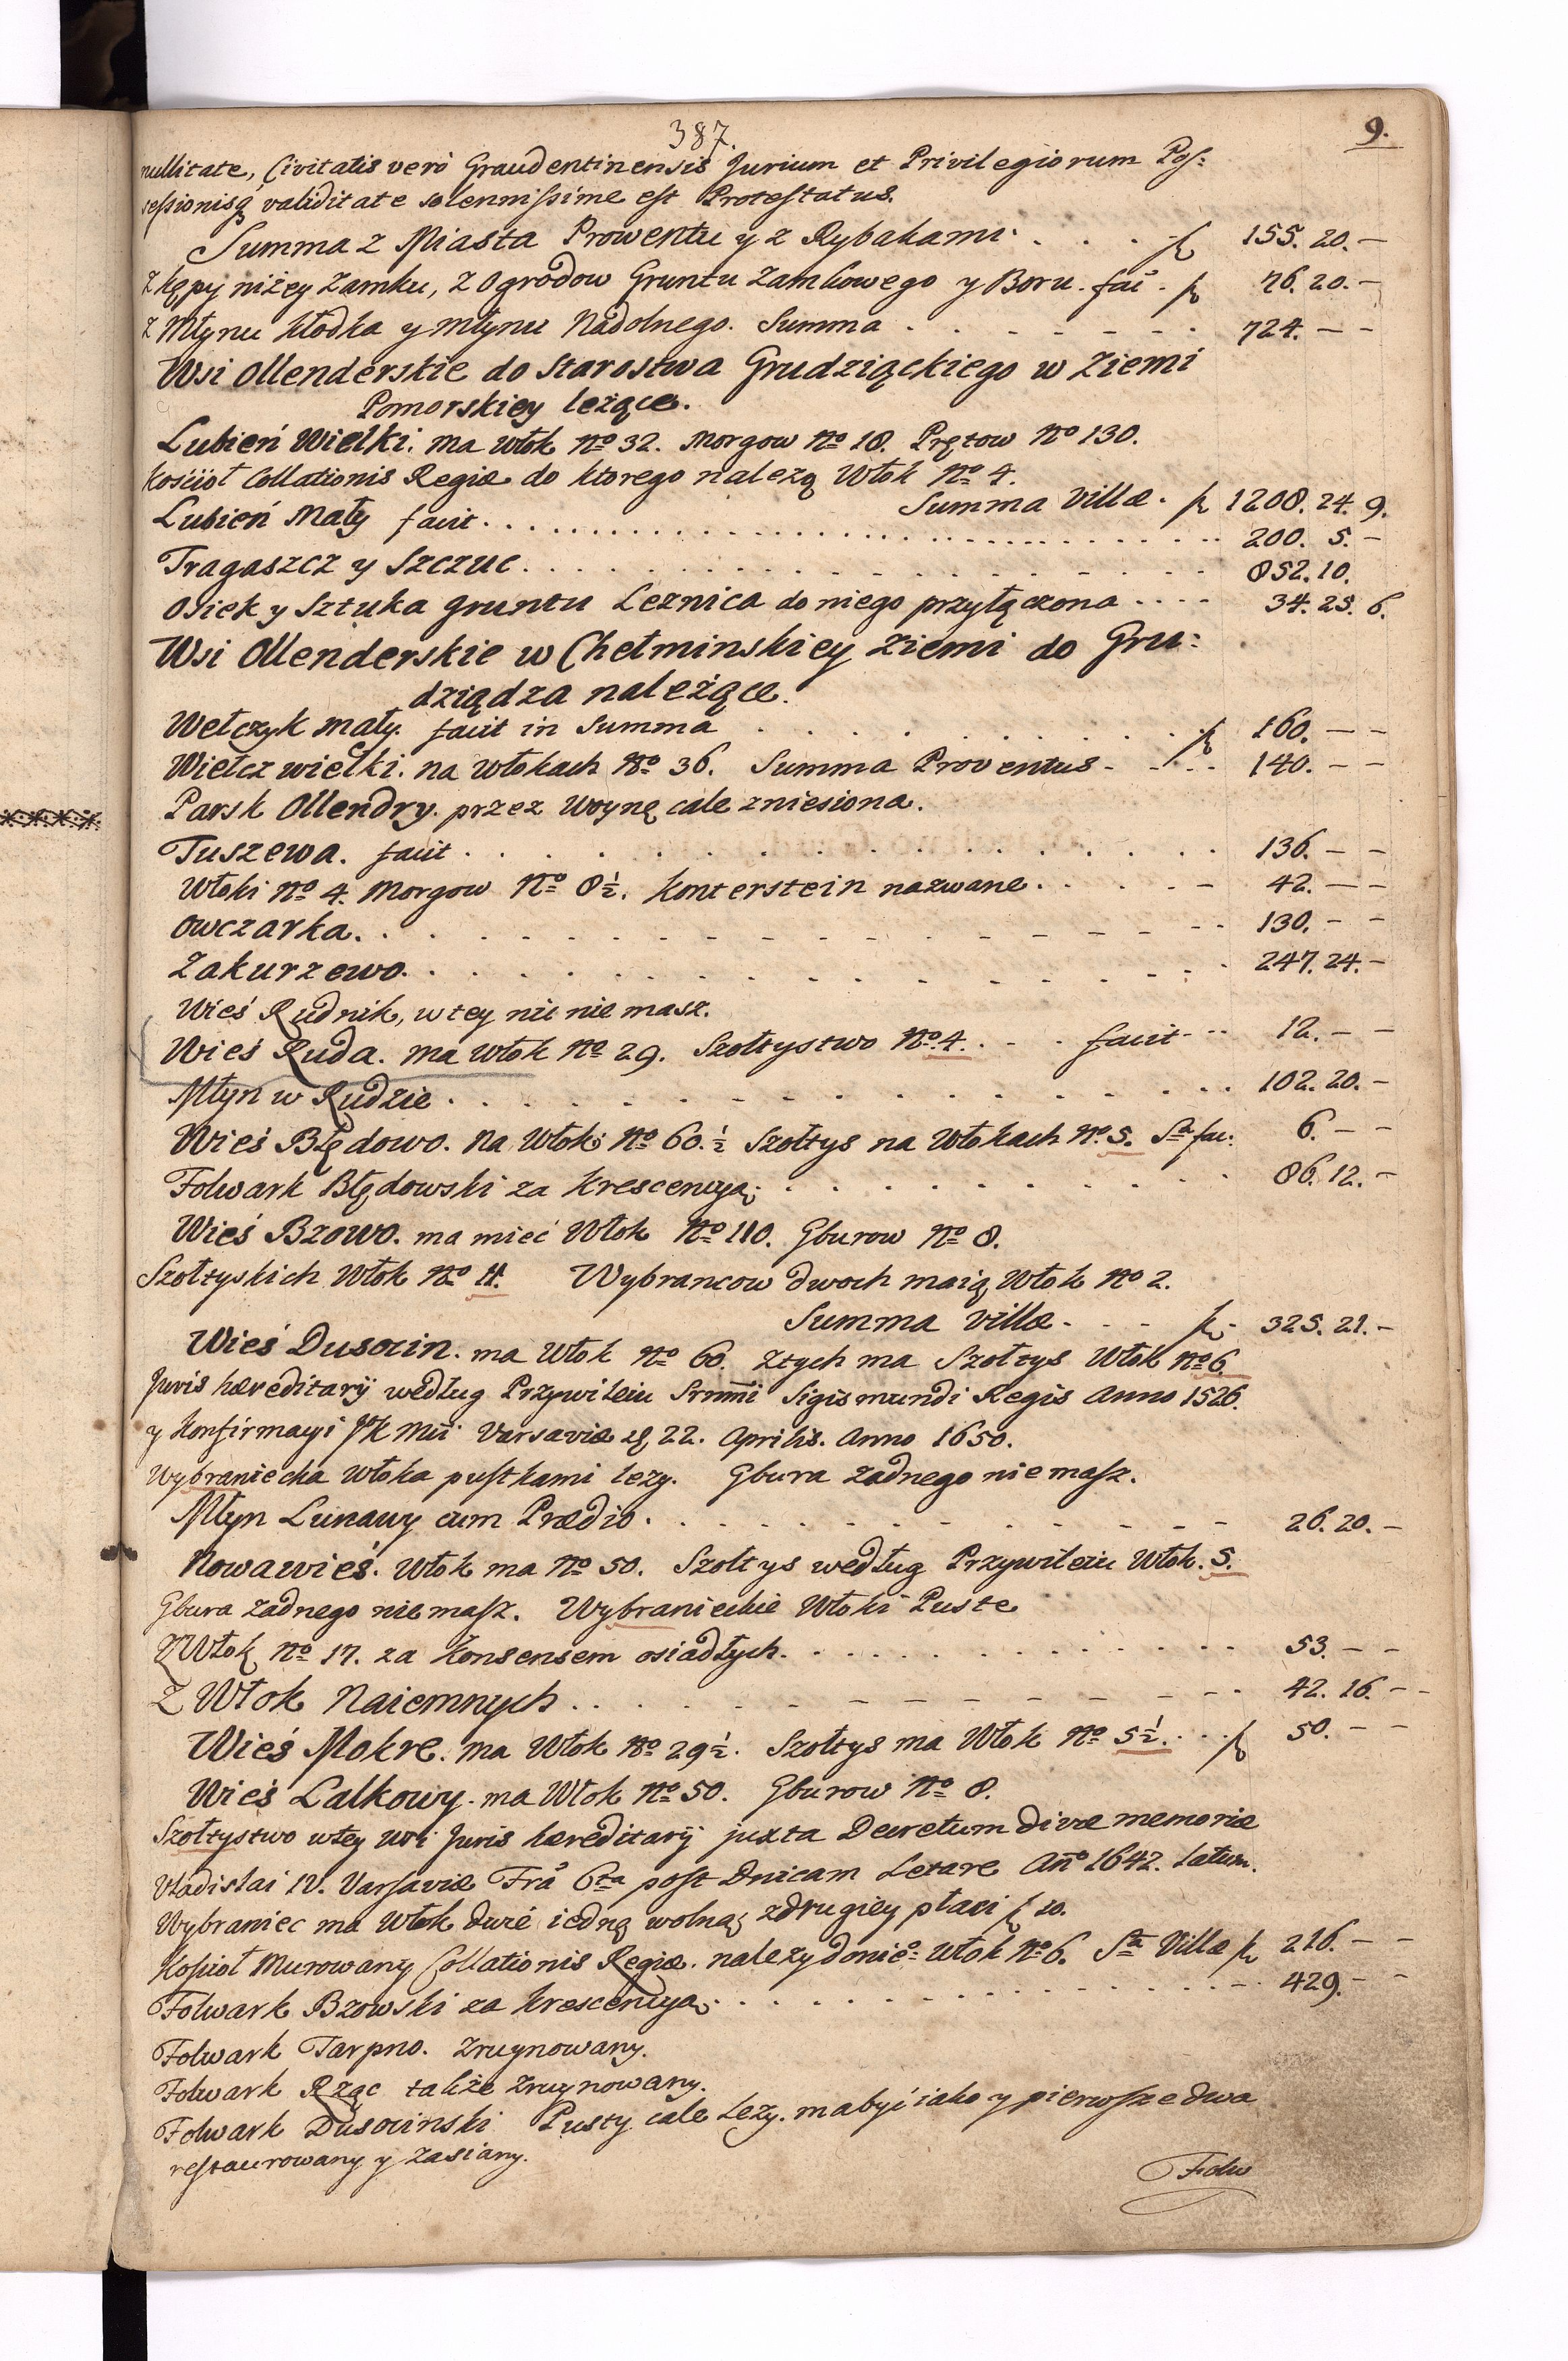 387.
9.
nullitate, Civitatis verò Graudentinensis Jurium et Privilegiorum Pos:
sessionisq validitate solennissime est Protestatus.
Summa z Miasta Prowentu y z Rybakami . . . . fl 155. 20. —
z kępy niżey Zamku, z Ogrodow Gruntu Zamkowego y Boru . faċ . fl 76. 20. —
z Młynu Kłodka y młynu Nadolnego. Summa . . . . . . 724. — —
Wsi Ollenderskie do Starostwa Grudziąckiego w Ziemi
Pomorskiey leżące.
Lubień Wielki. ma włok No 32. Morgow No 18. Prętow No 130.
Kościoł Collationis Regiæ do ktorego nalezą Włok No 4.
Summa Villæ . fl 1208. 24. 9.
Lubień Mały facit . . . . . . 200. 5. —
Tragaszcz y Szczuc . . . . . . 852. 10.
Osiek y Sztuka gruntu Leznica do niego przyłączona . . . . 34. 25. 6.
Wsi Ollenderskie w Chełminskiey Ziemi do Gru:
dziądza należące.
Wełczyk mały. facit in Summa . . . . . . fl 160. — —
Wiełcz wielki. na włokach No 36. Summa Proventus . . . . 140. — —
Parsk Ollendry. przez Woynę cale zniesiona.
Tuszewa. facit . . . . . . 136. — —
Włoki No 4. Morgow No 8½. Konterstein nazwane . . . . . 42. — —
Owczarka. . . . . . . 130. — —
Zakurzewo. . . . . . . 247. 24. —
Wieś Rudnik, w tey nic nie masz.
Wieś Ruda. ma włok No 29. Szołtystwo No. 4. . . . facit . . 12. — —
Młyn w Rudzie . . . . . . 102. 20. —
Wieś Błędowo. Na Włok: No 60.½ Szołtys na Włokach No. 5. Sa fac: 6. — —
Folwark Błędowski za Krescencyą . . . . . . 86. 12. —
Wieś Bzowo. ma mieć Włok No 110. Gburow No 8.
Szołtyskich Włok No 11. Wybrancow dwoch maią Włok No 2.
Summa Villæ . . . . fl . 325. 21. —
Wieś Dusocin. ma Włok No 60. Ztych ma Szołtys Włok No 6.
Juris hæreditarÿ według Przywileiu Srmmi Sigismundi Regis Anno 1526.
y Konfirmacyi JoK Mci Varsaviæ 22. Aprilis. Anno 1650.
Wybraniecka włoka pustkami lezy. Gbura zadnego nie masz.
Młyn Lunawy cum Prædio . . . . . . 26. 20. —
Nowawieś. Włok ma No 50. Szołtys według Przywileiu Włok. 5.
Gbura zadnego nie masz. Wybranieckie Włoki Puste
Z Włok No 17. za Konsensem osiadłych . . . . . . 53. — —
Z Włok Naiemnych . . . . . . 42. 16. — —
Wieś Mokre. ma Włok No 29½. Szołtys ma Włok No 5½. . . . fl 50. — —
Wieś Lalkowy. ma Włok No 50. Gburow No 8.
Szołtystwo wtey wsi Juris hæreditarÿ juxta Decretum divæ memoriæ
Vladislai IV. Varsaviæ Fra 6ta post Dnicam Letare Ano 1642. latum.
Wybraniec ma Włok dwie iedną wolną, zdrugiey płaci fl 10.
Kościoł Murowany Collationis Regiæ. należy do nieo: Włok No 6. Sa Villæ fl 216. — —
Folwark Bzowski za Krescencyą . . . . . . 429. — —
Folwark Tarpno. zruynowany.
Folwark Rząc także zruynowany.
Folwark Dusocinski Pusty cale Leży. ma być iako y pierwsze dwa
restaurowany y zasiany.
Folw